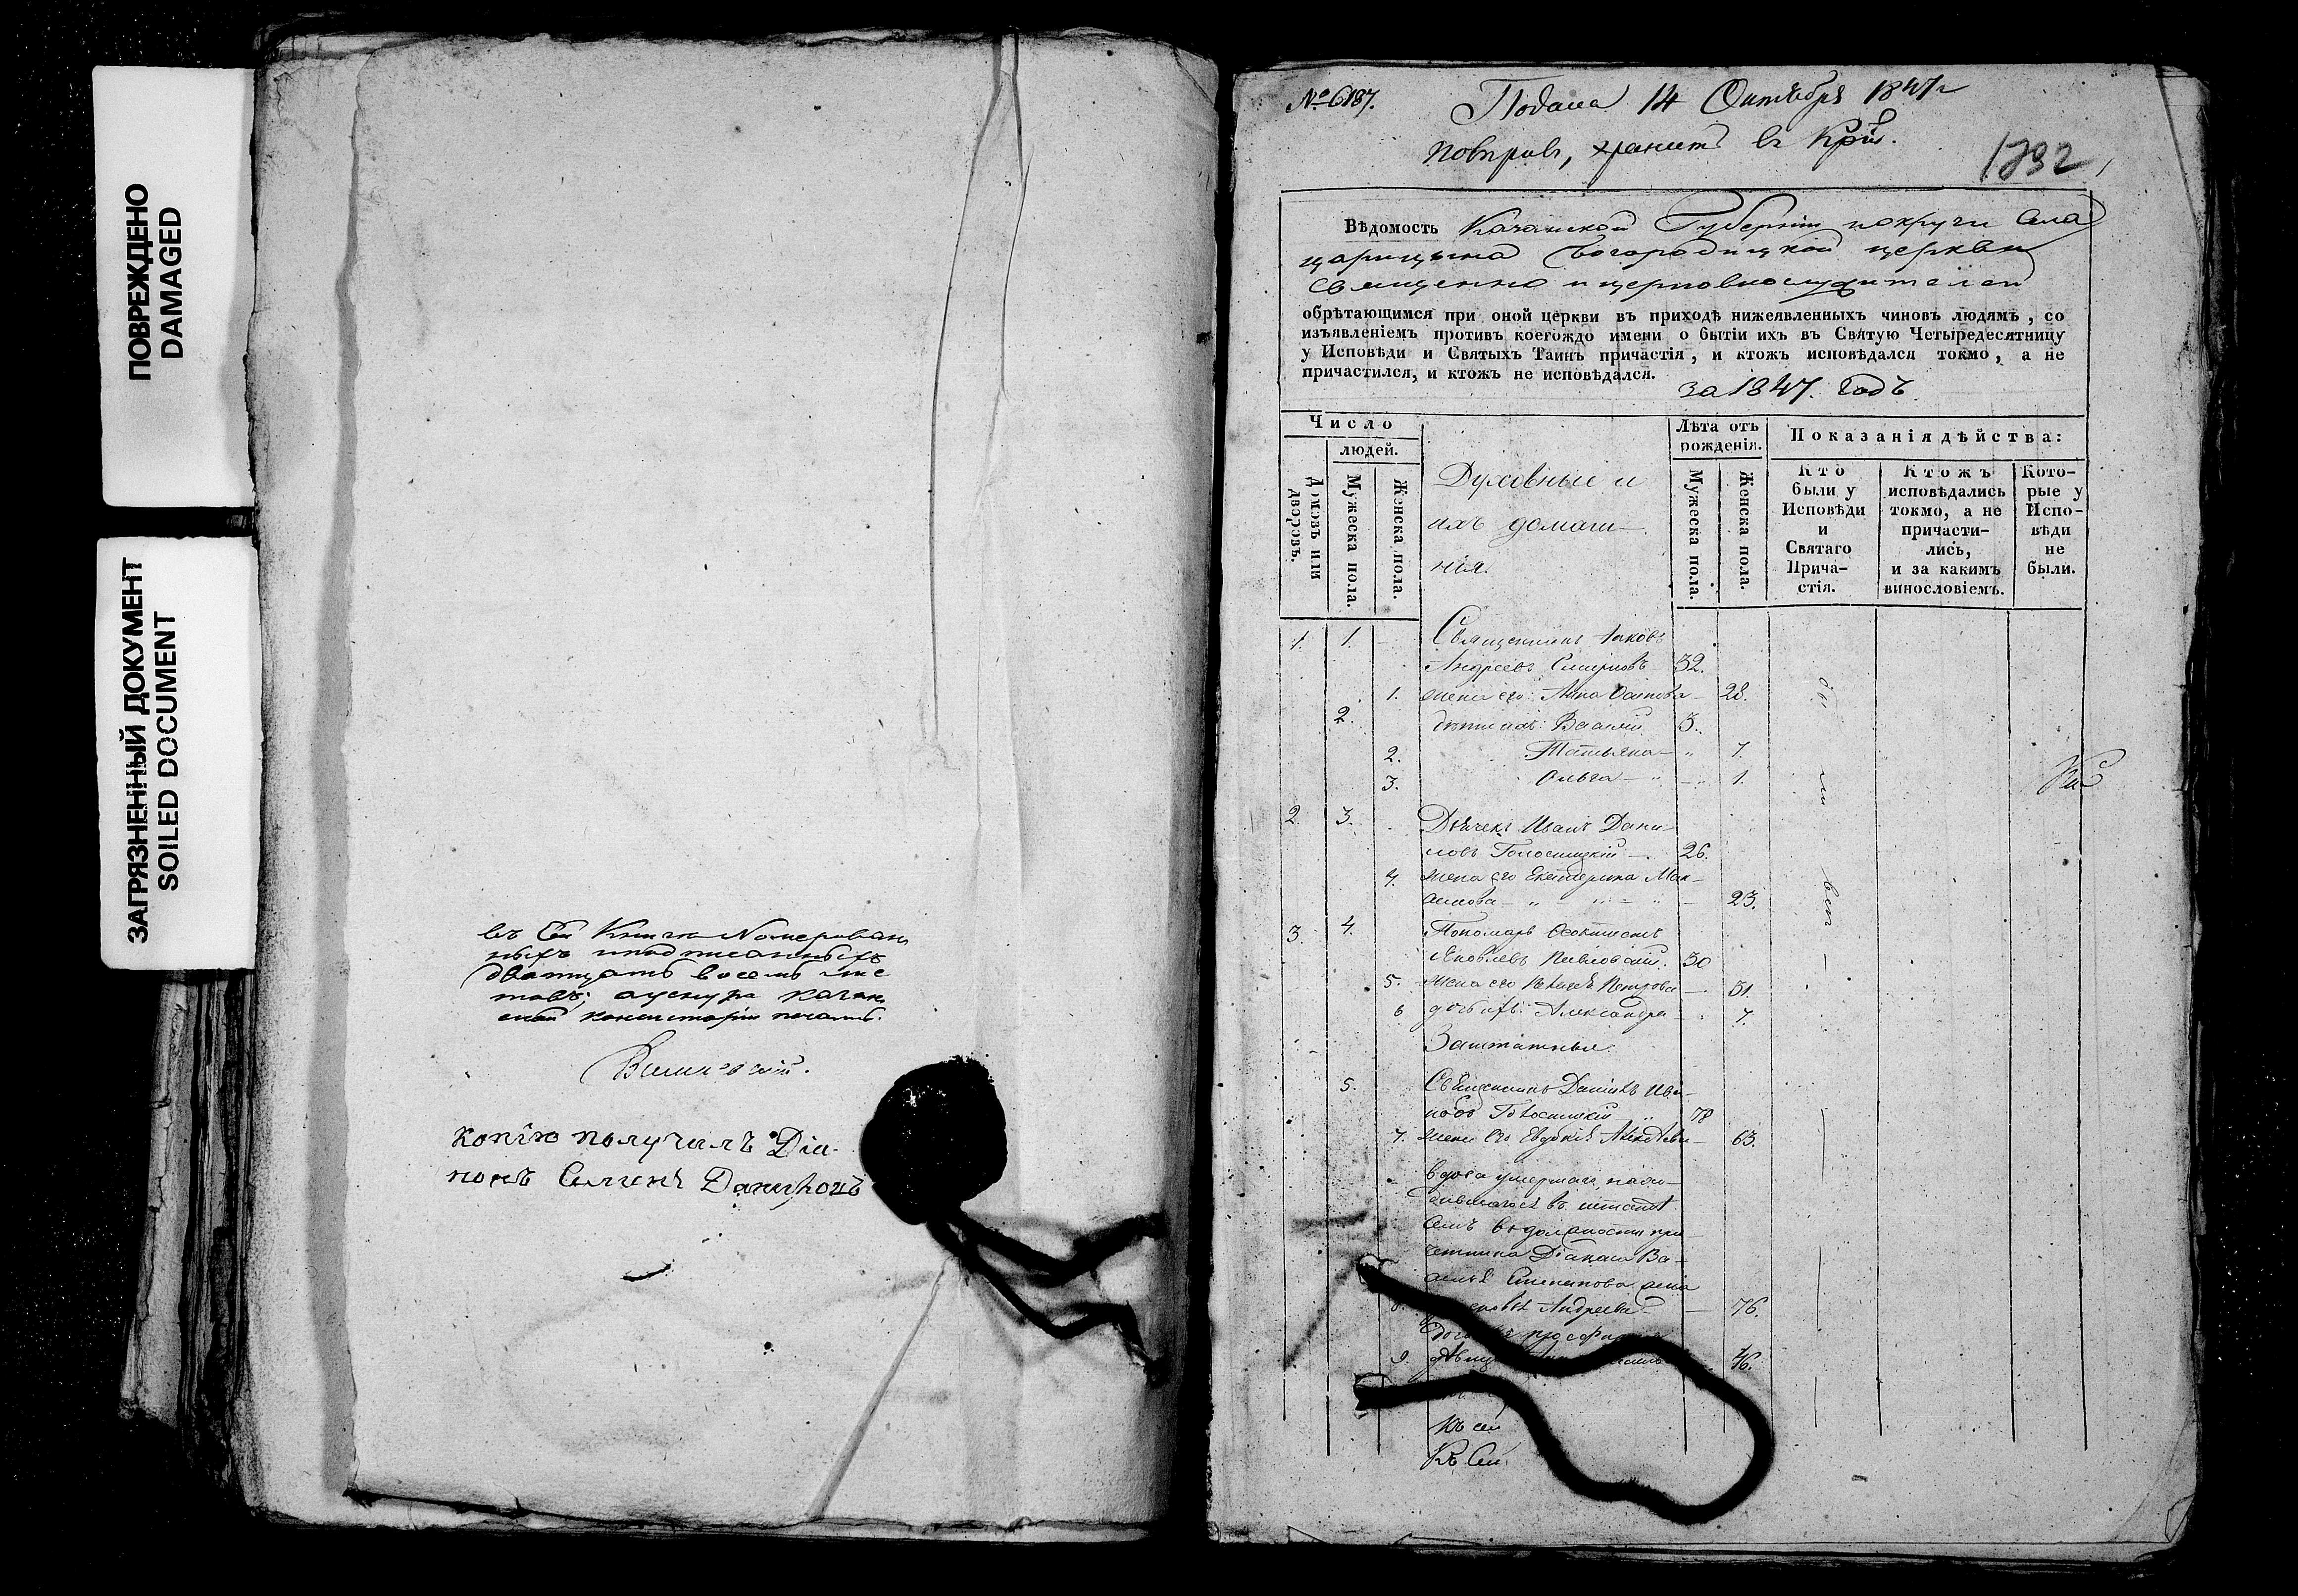 ПОВРЕЖДЕНО
DAMAGED
ЗАГРЯЗНЕННЫЙ ДОКУМЕНТ
SOILED DOCUMENT
въ Сей Книге Номерован
ныхъ и подписанныхъ
дватцать восемь лис
товъ; а у снура казан
ской консисторіи печать.
Копію получилъ Діа-
конъ
№ 6187.
Подана 14 Октября 1847 г
повѣривъ, хранить въ
1792
Вѣдомость Казанской Губерніи и округи Села
царицына Богородицкой церкви
Священно и церковнослужителей
обрѣтающимся при оной церкви въ приходѣ нижеявленныхъ чиновъ людямъ, со
изъявленіемъ противъ коегождо имени о бытіи ихъ въ Святую Четыредесятницу
у Исповѣди и Святыхъ Таинъ причастія, и ктожъ исповѣдался токмо, а не
причастился, и ктожъ не исповѣдался.
за 1847. годъ.
Число
людей.
Домовъ или
дворовъ.
Мужеска пола.
Женска пола.
Духовные и
ихъ домаш-
нія.
Лѣта отъ
рожденія.
Мужеска пола.
Женска пола.
Показанія дѣйства:
Кто
были у
Исповѣди
и
Святаго
Прича-
стія.
Ктожъ
исповѣдались
токмо, а не
причасти-
лись,
и за какимъ
винословіемъ.
Кото-
рые у
Испо-
вѣди
не
были.
1. 1. Священникъ Іаковъ
Андреевъ Смирновъ 32.
1. жена его: Анна Осипова 28.
2. дѣти ихъ: Василій 3.
2. Татьяна 7.
3. Ольга 1.
2. 3. Дьячекъ Иванъ Дани
ловъ 26.
4. жена его Екатерина Мак-
симова 23.
3. 4. Пономарь
Яковлевъ 30
5. Жена его Петрова 31.
6 дочь ихъ: Александра 7.
Заштатные.
5. Священникъ Даніилъ Ива-
новъ 78
7. жена его Евдокія 63.
вдова умершаго нахо-
дившагося въ штатѣ
въ должности при
четника Діакона Ва-
силья Степанова
Андреева 76.
9. 46.
были
всѣ
Къ сей
Къ Сей